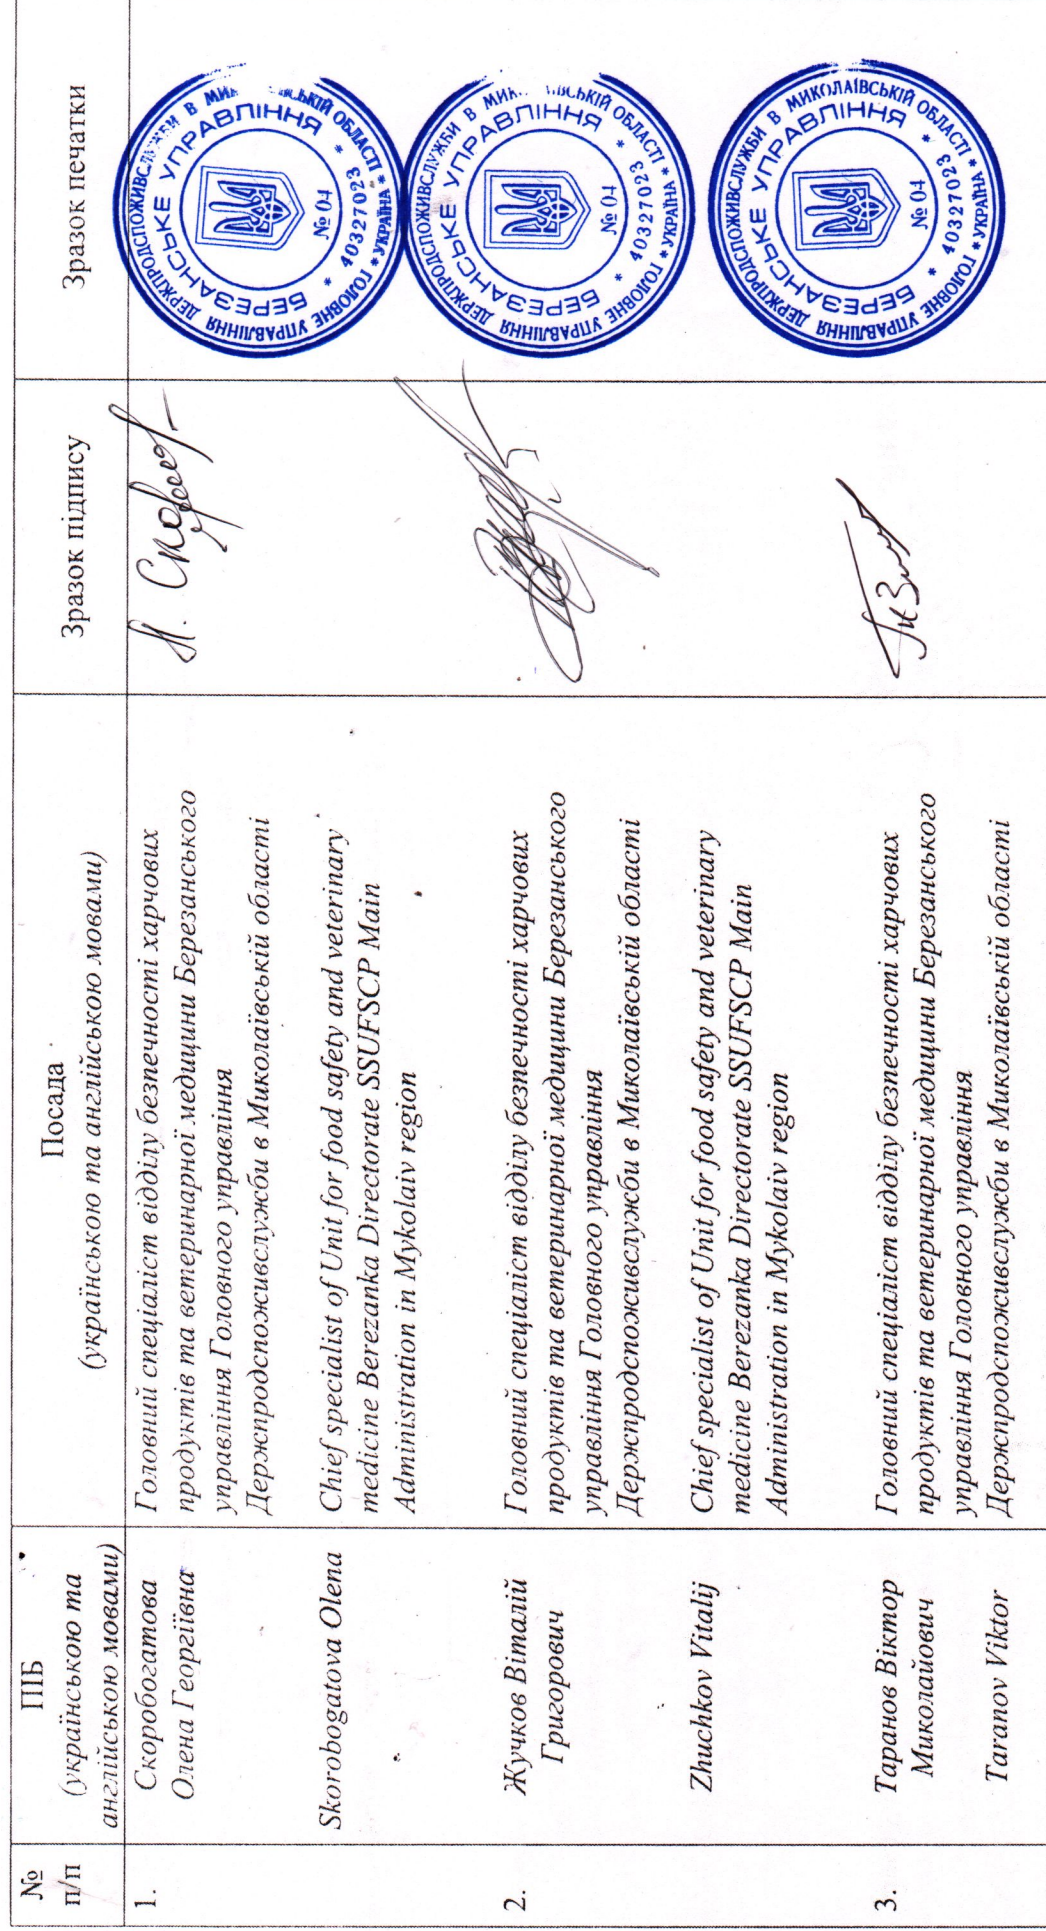 №
п/п
ПІБ
(українською та
англійською мовами)
Посада
(українською та англійською мовами)
Зразок підпису
Зразок печатки
1.
Скоробогатова
Олена Георгіївна
Skorobogatova Olena
Головний спеціаліст відділу безпечності харчових
продуктів та ветеринарної медицини Березанського
управління Головного управління
Держпродспоживслужби в Миколаївській області
Chief specialist of Unit for food safety and veterinary
medicine Berezanka Directorate SSUFSCP Main
Administration in Mykolaiv region
ГОЛОВНЕ УПРАВЛІННЯ ДЕРЖПРОДСПОЖИВСЛУЖБИ В ОБЛАСТІ * УКРАЇНА *
БЕРЕЗАНСЬКЕ УПРАВЛІННЯ * 40327023 *
№ 04
2.
Жучков Віталій
Григорович
Zhuchkov Vitalij
Головний спеціаліст відділу безпечності харчових
продуктів та ветеринарної медицини Березанського
управління Головного управління
Держпродспоживслужби в Миколаївській області
Chief specialist of Unit for food safety and veterinary
medicine Berezanka Directorate SSUFSCP Main
Administration in Mykolaiv region
ГОЛОВНЕ УПРАВЛІННЯ ДЕРЖПРОДСПОЖИВСЛУЖБИ В ОБЛАСТІ * УКРАЇНА *
БЕРЕЗАНСЬКЕ УПРАВЛІННЯ * 40327023 *
№ 04
3.
Таранов Віктор
Миколайович
Taranov Viktor
Головний спеціаліст відділу безпечності харчових
продуктів та ветеринарної медицини Березанського
управління Головного управління
Держпродспоживслужби в Миколаївській області
ГОЛОВНЕ УПРАВЛІННЯ ДЕРЖПРОДСПОЖИВСЛУЖБИ В МИКОЛАЇВСЬКІЙ ОБЛАСТІ * УКРАЇНА *
БЕРЕЗАНСЬКЕ УПРАВЛІННЯ * 40327023 *
№ 04